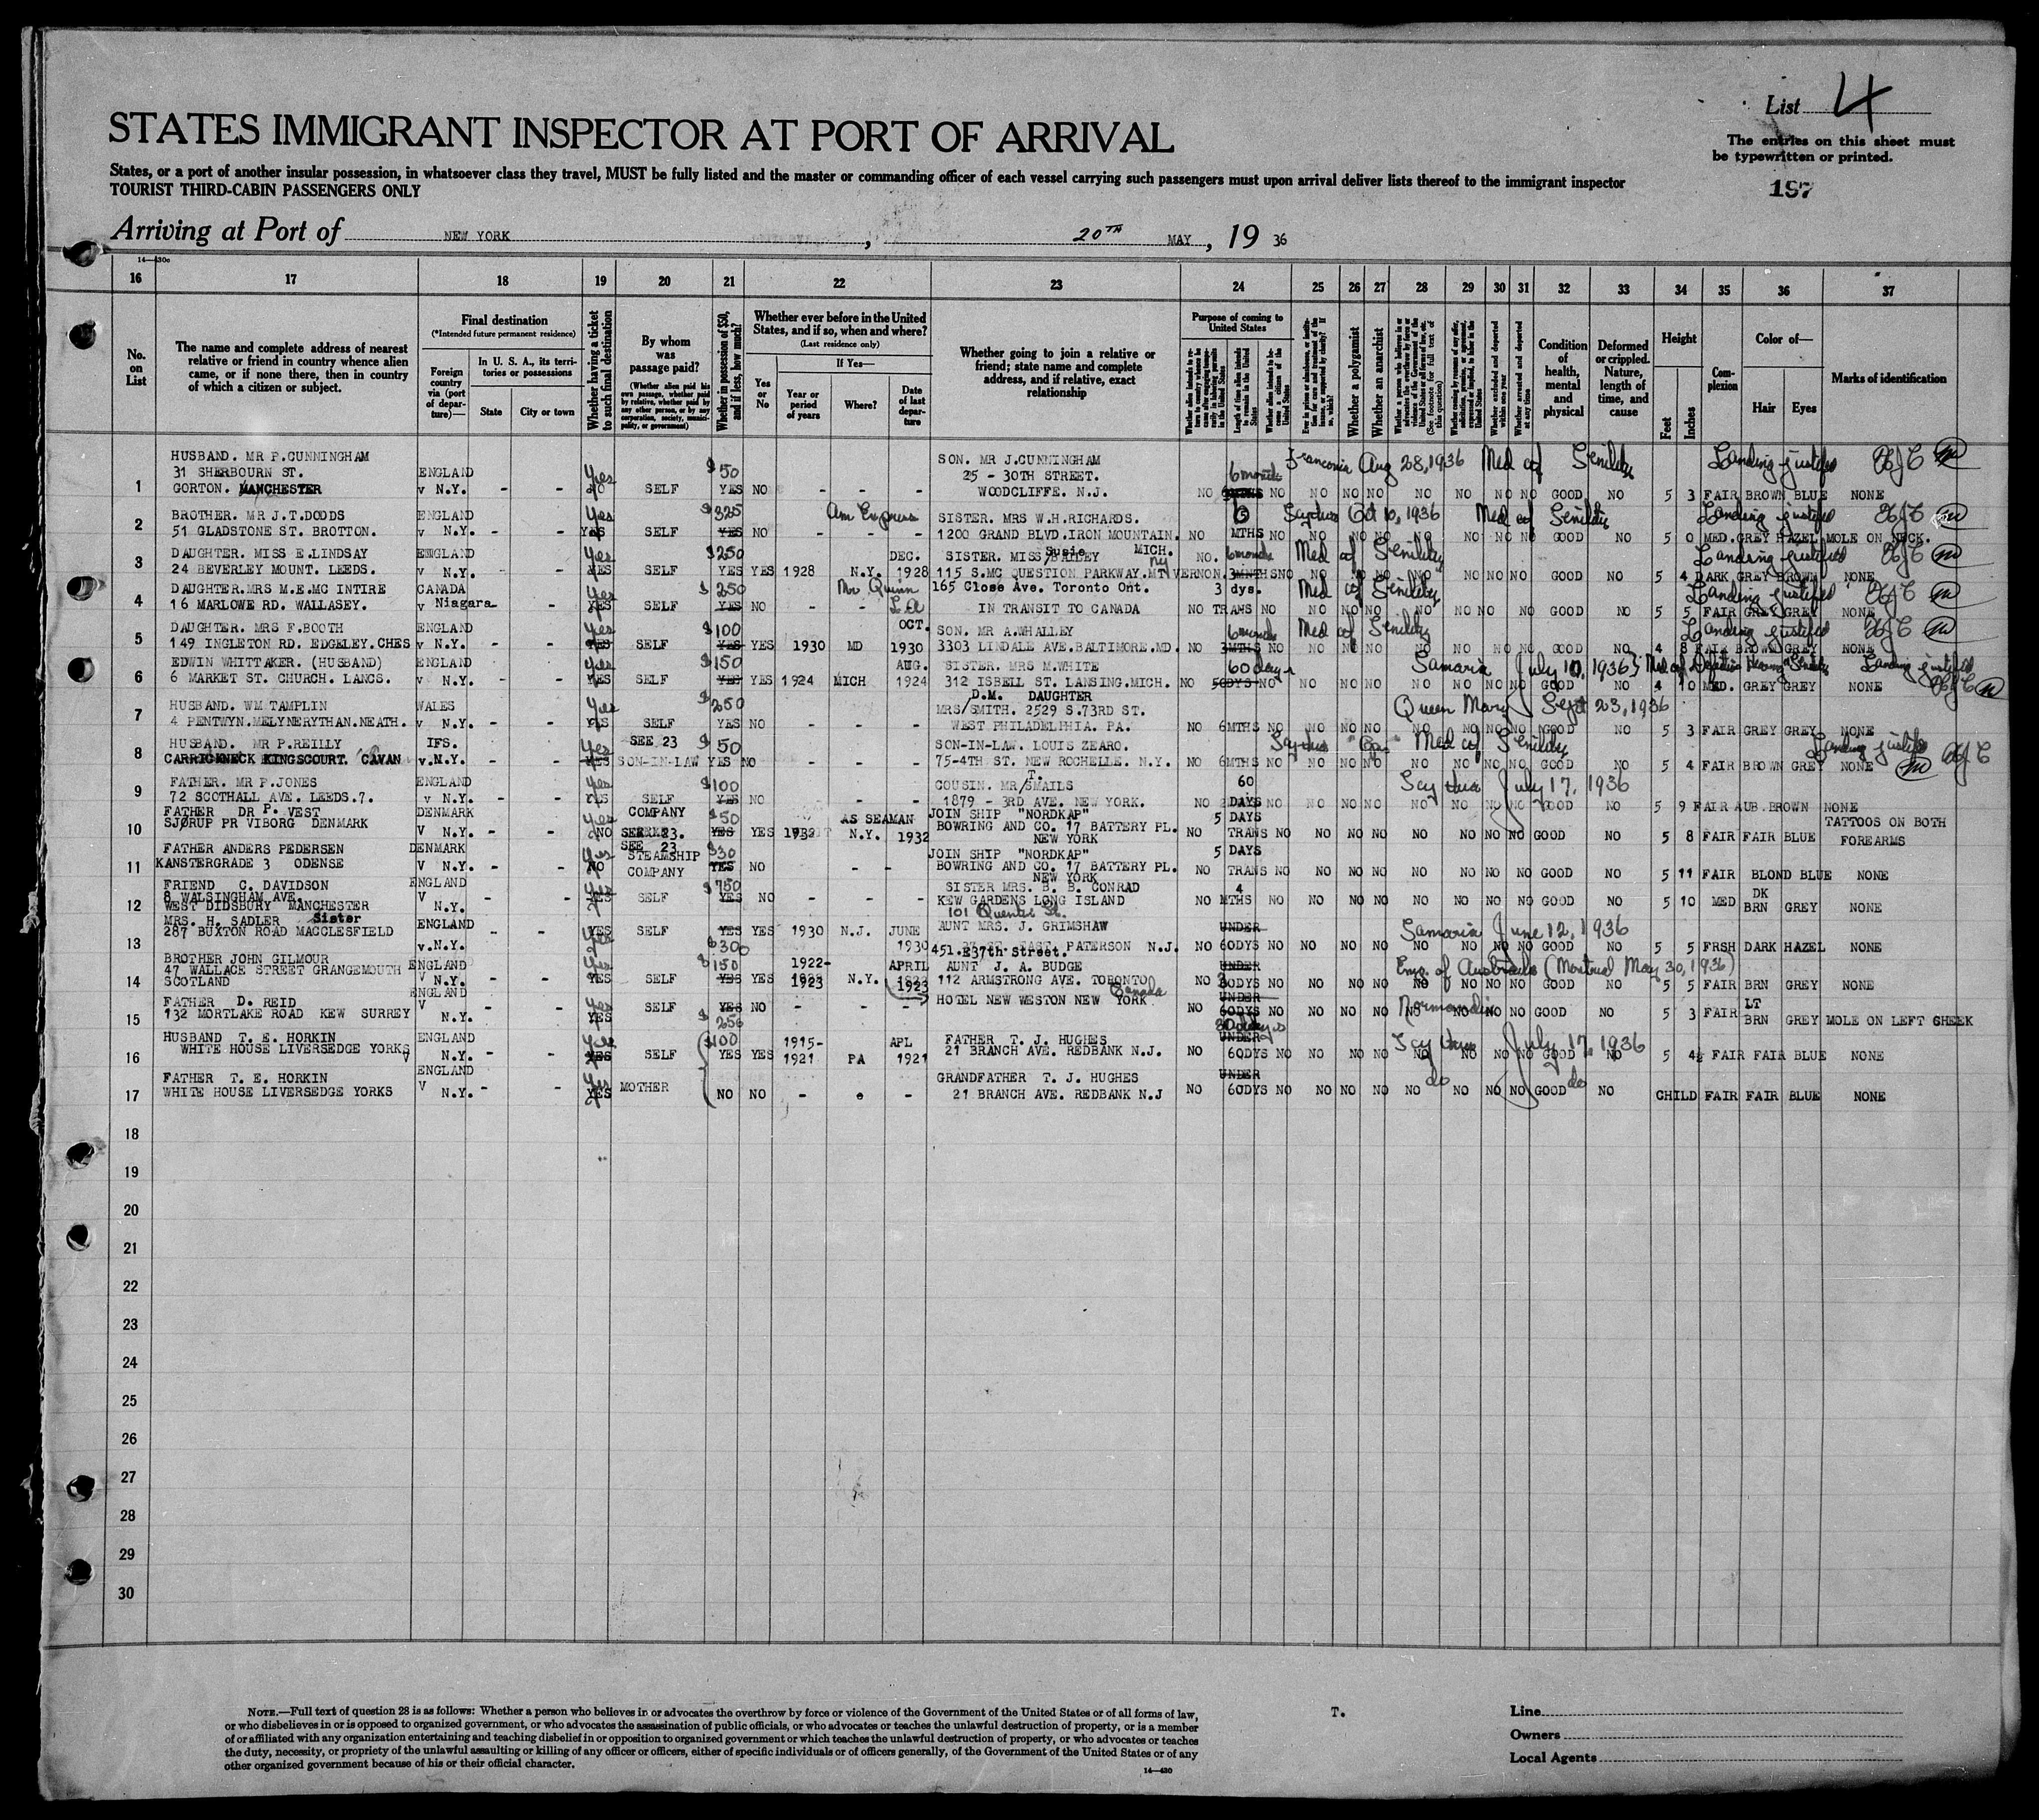 List 4
STATES IMMIGRANT INSPECTOR AT PORT OF ARRIVAL
The entries on this sheet must
be typewritten or printed.
States, or a port of another insular possession, in whatsoever class they travel, MUST be fully listed and the master or commanding officer of each vessel carrying such passengers must upon arrival deliver lists thereof to the immigrant inspector
TOURIST THIRD-CABIN PASSENGERS ONLY
197
Arriving at Port of NEW YORK, 20TH MAY, 19 36
14—430c
16 17 18 19 20 21 22 23 24 25 26 27 28 29 30 31 32 33 34 35 36 37
No. on List
The name and complete address of nearest relative or friend in country whence alien came, or if none there, then in country of which a citizen or subject.
Final destination
(*Intended future permanent residence)
Foreign country via (port of departure)—
In U. S. A., its territories or possessions
State
City or town
Whether having a ticket to such final destination
By whom was passage paid?
(Whether alien paid his own passage, whether paid by relative, whether paid by any other person, or by any corporation, society, municipality, or government)
Whether in possession of $50, and if less, how much?
Whether ever before in the United States, and if so, when and where?
(Last residence only)
Yes or No
If Yes—
Year or period of years
Where?
Date of last departure
Whether going to join a relative or friend; state name and complete address, and if relative, exact relationship
Purpose of coming to United States
Length of time alien intends to remain in the United States
Whether alien intends to become a citizen of the United States
Whether a polygamist
Whether an anarchist
(See footnote for full text of this question)
Whether excluded and deported within one year
Whether arrested and deported at any time
Condition of health, mental and physical
Deformed or crippled. Nature, length of time, and cause
Height
Feet
Inches
Complexion
Color of—
Hair
Eyes
Marks of identification
HUSBAND. MR P.CUNNINGHAM $50 SON. MR J.CUNNINGHAM Franconia Aug 28, 1936 Med cf Senility Landing justified
31 SHERBOURN ST. ENGLAND Yes 25 - 30TH STREET. 6 months
1 GORTON. MANCHESTER v N.Y. - - NO SELF YES NO - - - WOODCLIFFE. N.J. NO NO NO NO NO NO NO NO NO GOOD NO 5 3 FAIR BROWN BLUE NONE
2 BROTHER. MR J.T.DODDS ENGLAND Yes $325 Am Express SISTER. MRS W.H.RICHARDS. 6 Scythia Oct 10, 1936 Med cf Senility Landing justified
51 GLADSTONE ST. BROTTON. v N.Y. - - YES SELF YES NO - - - 1200 GRAND BLVD.IRON MOUNTAIN. NO MTHS NO NO NO NO NO NO NO NO GOOD NO 5 0 MED. GREY HAZEL MOLE ON NECK.
DAUGHTER. MISS E.LINDSAY ENGLAND Yes $250 DEC. SISTER. MISS/BAILEY Susie MICH. NO. 6 months Med cf Senility Landing justified
3 24 BEVERLEY MOUNT. LEEDS. v N.Y. - - YES SELF YES YES 1928 N.Y. 1928 115 S.MC QUESTION PARKWAY.MT VERNON. NY 3MNTHS NO NO NO NO NO NO NO NO GOOD NO 5 4 DARK GREY BROWN NONE
DAUGHTER.MRS M.E.MC INTIRE CANADA Yes $250 Mr Quinn 165 Close Ave. Toronto Ont. 3 dys. Med cf Senility Landing justified
4 16 MARLOWE RD. WALLASEY. v Niagara - - YES SELF YES NO - - IN TRANSIT TO CANADA NO TRANS NO NO NO NO NO NO NO NO GOOD NO 5 5 FAIR GREY GREY NONE
DAUGHTER. MRS F.BOOTH ENGLAND Yes $100 OCT. SON. MR A.WHALLEY 6 months Med cf Senility Landing justified
5 149 INGLETON RD. EDGELEY.CHES v N.Y. - - YES SELF YES YES 1930 MD 1930 3303 LINDALE AVE.BALTIMORE.MD. NO 3MTHS NO NO NO NO NO NO NO NO GOOD NO 4 8 FAIR BROWN GREY NONE
EDWIN WHITTAKER. (HUSBAND) ENGLAND Yes $150 AUG. SISTER. MRS M.WHITE 60 days Samaria July 10, 1936 Med cf Defective Hearing Senility Landing justified
6 6 MARKET ST. CHURCH. LANCS. v N.Y. - - YES SELF YES YES 1924 MICH 1924 312 ISBELL ST. LANSING.MICH. NO 50DYS NO NO NO NO NO NO NO NO GOOD NO 4 10 MED. GREY GREY NONE
HUSBAND. WM TAMPLIN WALES Yes $250 D.M. DAUGHTER
MRS/SMITH. 2529 S.73RD ST. Queen Mary Sept 23, 1936
7 4 PENTWYN.MELYNERYTHAN.NEATH. v N.Y. - - YES SELF YES NO - - - WEST PHILADELPHIA. PA. NO 6MTHS NO NO NO NO NO NO NO NO GOOD NO 5 3 FAIR GREY GREY NONE
8 HUSBAND. MR P.REILLY IFS. Yes SEE 23 $50 SON-IN-LAW. LOUIS ZEARO. Scythia Med cf Senility Landing justified
CARRICKNECK KINGSCOURT. CAVAN v.N.Y. - - YES SON-IN-LAW YES NO - - - 75-4TH ST. NEW ROCHELLE. N.Y. NO 6MTHS NO NO NO NO NO NO NO NO GOOD NO 5 4 FAIR BROWN GREY NONE
FATHER. MR P.JONES ENGLAND Yes $100 COUSIN. MR/SMAILS T. 60 Scythia July 17, 1936
9 72 SCOTHALL AVE. LEEDS.7. v N.Y. - - YES SELF YES NO - - 1879 - 3RD AVE. NEW YORK. NO DAYS NO NO NO NO NO NO NO NO GOOD NO 5 9 FAIR AUB.BROWN NONE
FATHER DR P. VEST DENMARK Yes COMPANY $50 AS SEAMAN JOIN SHIP "NORDKAP" 5 DAYS TATTOOS ON BOTH
10 SJØRUP PR VIBORG DENMARK V N.Y. - - NO SEE 23. YES YES 1932 N.Y. 1932 BOWRING AND CO. 17 BATTERY PL. NEW YORK NO TRANS NO NO NO NO NO NO NO NO GOOD NO 5 8 FAIR FAIR BLUE FOREARMS
FATHER ANDERS PEDERSEN DENMARK Yes SEE 23 STEAMSHIP $30 JOIN SHIP "NORDKAP" 5 DAYS
11 KANSTERGRADE 3 ODENSE V N.Y. - - NO COMPANY YES NO - - BOWRING AND CO. 17 BATTERY PL. NEW YORK NO TRANS NO NO NO NO NO NO NO NO GOOD NO 5 11 FAIR BLOND BLUE NONE
FRIEND C. DAVIDSON ENGLAND Yes $750 SISTER MRS. B. B. CONRAD 4 DK
8 WALSINGHAM AVE. V - - YES SELF YES NO - - - KEW GARDENS LONG ISLAND NO MTHS NO NO NO NO NO NO NO NO GOOD NO 5 10 MED BRN GREY NONE
12 WEST DIDSBURY MANCHESTER N.Y. 101 Quentis St.
MRS. H. SADLER Sister ENGLAND AUNT MRS. J. GRIMSHAW UNDER Samaria June 12, 1936
287 BUXTON ROAD MACCLESFIELD - - YES SELF YES YES 1930 N.J. JUNE
13 v.N.Y. Yes $300 1930 451.E37th Street. PATERSON N.J. NO 60DYS NO NO NO NO NO NO NO NO GOOD NO 5 5 FRSH DARK HAZEL NONE
BROTHER JOHN GILMOUR Yes $150 1922- APRIL AUNT J. A. BUDGE UNDER Emp. of Australia (Montreal May 30, 1936)
47 WALLACE STREET GRANGEMOUTH ENGLAND
14 SCOTLAND V N.Y. - - YES SELF YES YES 1923 N.Y. 1923 112 ARMSTRONG AVE. TORONTO Canada NO 30DYS NO NO NO NO NO NO NO NO GOOD NO 5 5 FAIR BRN GREY NONE
FATHER D. REID ENGLAND Yes HOTEL NEW WESTON NEW YORK UNDER Normandie LT
15 132 MORTLAKE ROAD KEW SURREY V N.Y. - - YES SELF YES NO - - - NO 60DYS NO NO NO NO NO NO NO NO GOOD NO 5 3 FAIR BRN GREY MOLE ON LEFT CHEEK
$256 30 days
HUSBAND T. E. HORKIN ENGLAND Yes $100 1915- APL FATHER T. J. HUGHES UNDER Scythia July 17, 1936
16 WHITE HOUSE LIVERSEDGE YORKS V N.Y. - - YES SELF YES YES 1921 PA 1921 21 BRANCH AVE. REDBANK N.J. NO 60DYS NO NO NO NO NO NO NO NO GOOD NO 5 4½ FAIR FAIR BLUE NONE
FATHER T. E. HORKIN ENGLAND Yes GRANDFATHER T. J. HUGHES UNDER do do
17 WHITE HOUSE LIVERSEDGE YORKS V N.Y. - - YES MOTHER NO NO - - - 21 BRANCH AVE. REDBANK N.J NO 60DYS NO NO NO NO NO NO NO NO GOOD NO CHILD FAIR FAIR BLUE NONE
18
19
20
21
22
23
24
25
26
27
28
29
30
NOTE.—Full text of question 28 is as follows: Whether a person who believes in or advocates the overthrow by force or violence of the Government of the United States or of all forms of law,
or who disbelieves in or is opposed to organized government, or who advocates the assassination of public officials, or who advocates or teaches the unlawful destruction of property, or is a member
of or affiliated with any organization entertaining and teaching disbelief in or opposition to organized government or which teaches the unlawful destruction of property, or who advocates or teaches
the duty, necessity, or propriety of the unlawful assaulting or killing of any officer or officers, either of specific individuals or of officers generally, of the Government of the United States or of any
other organized government because of his or their official character.
14—430
T.
Line
Owners
Local Agents